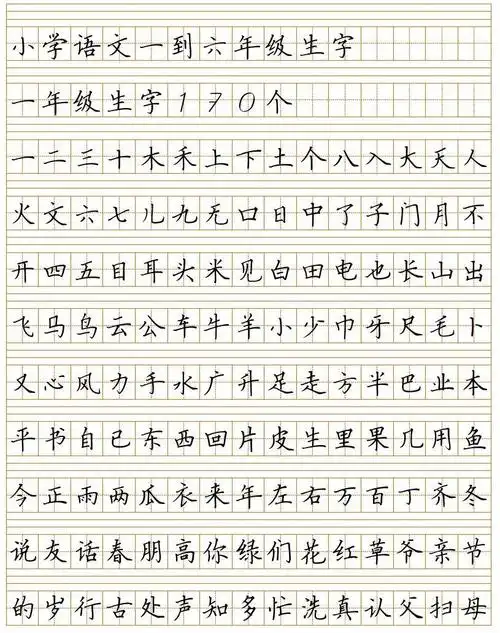 小学语文一到六年级生字
一年级生字170个
一二三十木禾上下土个八入大天人
火文六七儿九无口日中了子门月不
开四五目耳头米见白田电也长山出
飞马鸟云公车牛羊小少巾牙尺毛卜
又心风力手水广升足走方半巴业本
平书自已东西回片皮生里果几用鱼
今正雨两瓜衣来年左右万百丁齐冬
说友话春朋高你绿们花红草爷亲节
的岁行古处声知多忙洗真认父扫母